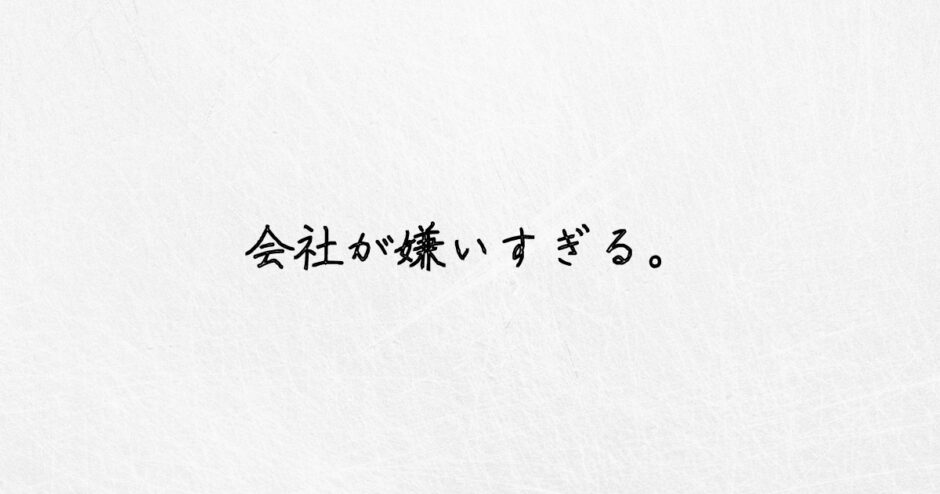 会社が嫌いすぎる。